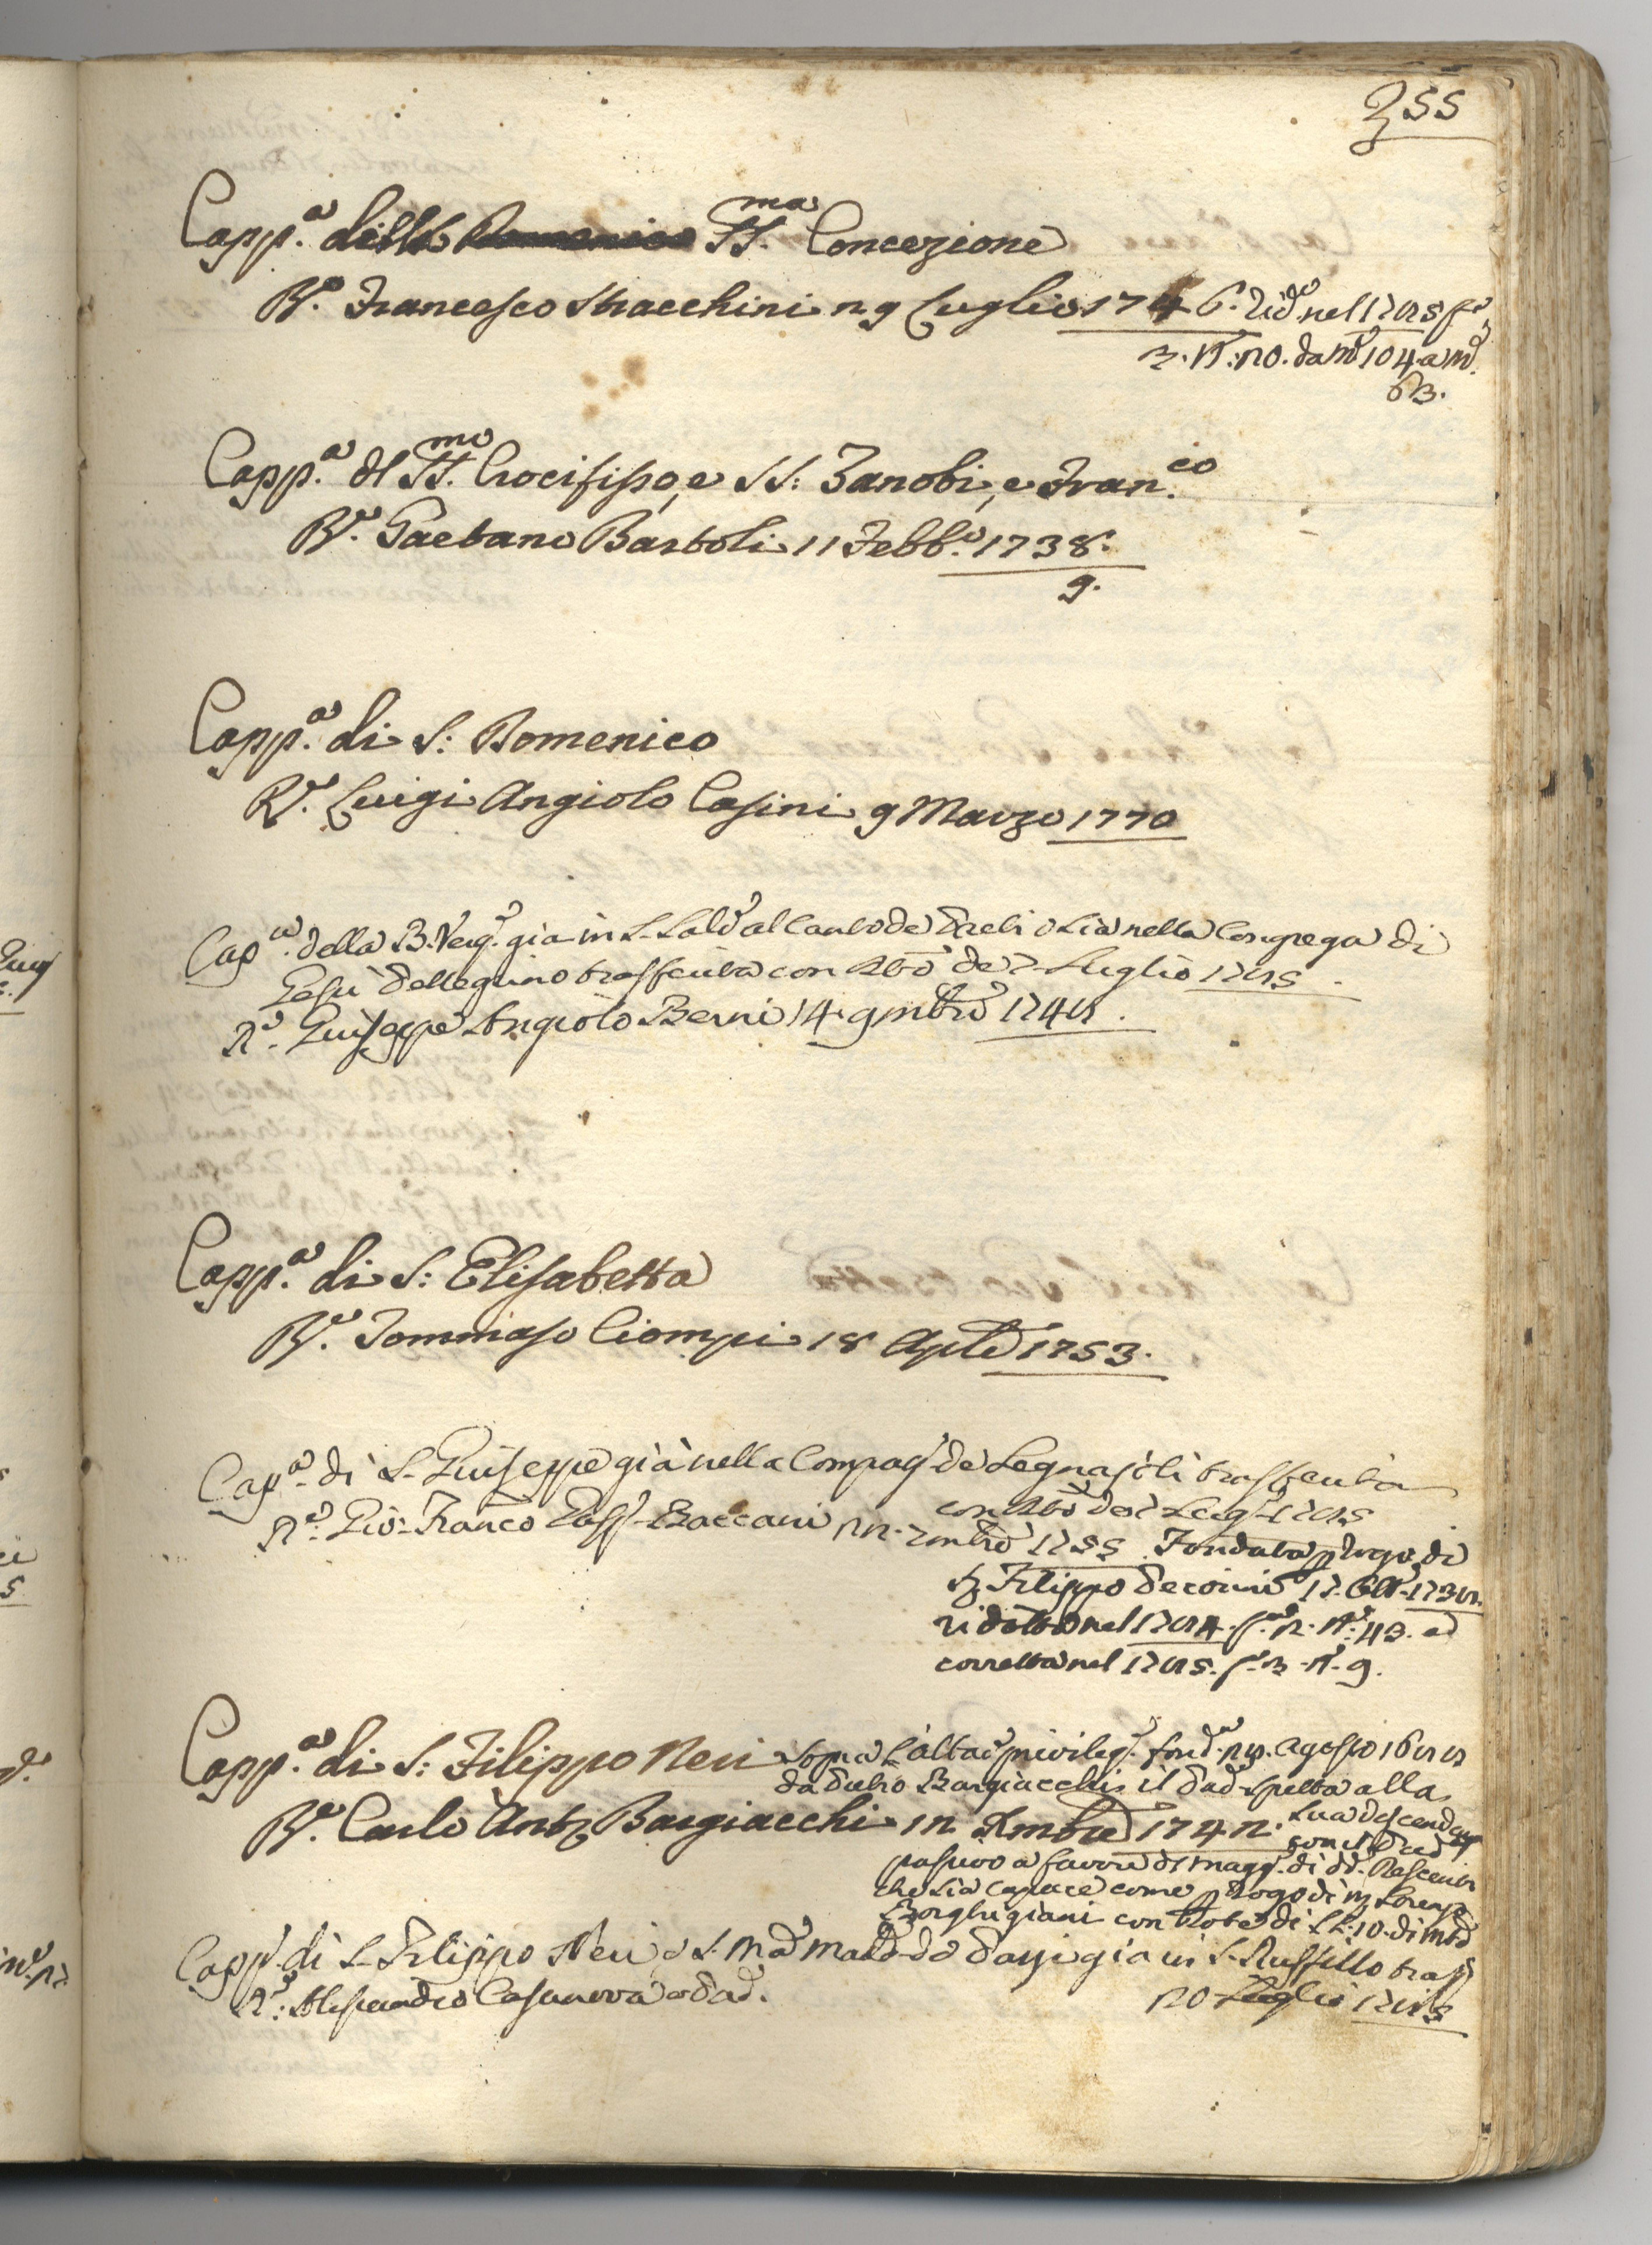 255
Capp.a della SS.ma Concezione
R.e Francesco Stracchini 29 Luglio 1746. rid.a nel 1785 f.a
3. N. 20. da m.e 104. a m.e
63.
Capp.a dl SS.mo Crocifisso, e SS: Zanobi, e Fran.co
R.e Gaetano Bartoli 11 Febb.o 1738.
9.
Capp.a di S: Domenico
R.e Luigi Angiolo Casini 9 Marzo 1770
Cap.a della B. Verg.e già in S. Salv.e al Canto de nella Congrega di
Gesù Pellegrino trasferita con de 7 Luglio 1785.
R.e Giuseppe Angiolo Berni 14. 9mbre 1748.
Capp.a di S: Elisabetta
R.e Tommaso Ciompi 18 Aple 1753.
Cap.a di S. Giuseppe già nella Compag. de Legnajoli trasferita
con de 7 Lug. 1785
R.e Gio: Franco Baccani 22. 7mbre 1755 Fondata p rogo di
Filippo 17. Ott. 1738.
ridotta nel 1784. f.a 2. N.o 43. ed
corretta nel 1785. f.a 3. N.o 9.
Capp.a di S: Filippo Neri sopra l'altar privileg. fond.a 28. Agosto 1688
da Pietro Bargiacchi il Pad. spetta alla
sua descend.
R.e Carlo Ant. Bargiacchi 12 Xmbre 1742.
passivo a favore dl magg. di dd.
che sia capace come p rogo di Lorenzo
Borghigiani con dote di sc. 10. di
Capp. di S. Filippo Neri e S. M.a Madd. de Pazzi già in S. Ruffillo trasf.
20 Luglio 1785
R.e Alessandro Casanova e Pad.